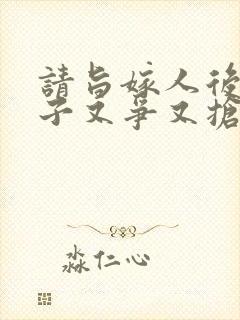 請旨嫁人後
子又爭又搶
淼仁心